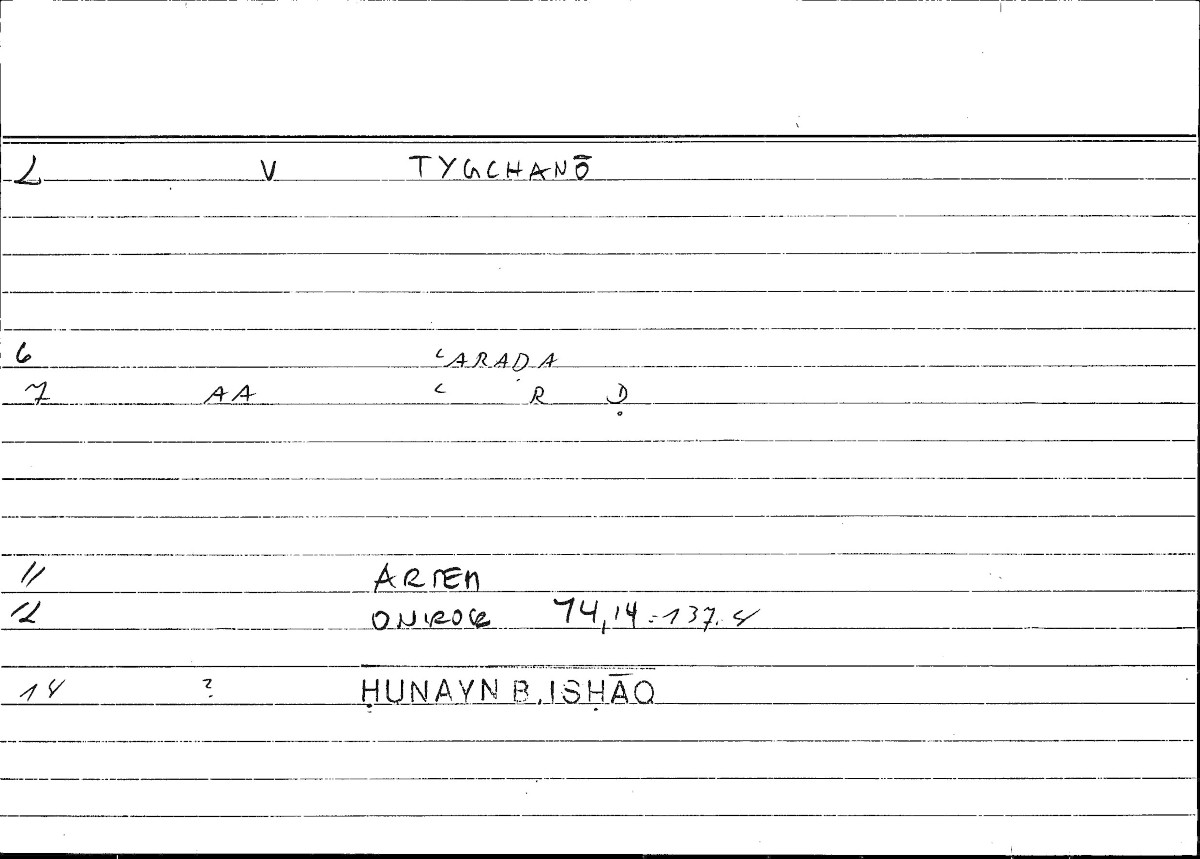 2 V TYGCHANŌ
6 ʿARADA
7 AA ʿ R Ḍ
11 ARTEM
12 ONIROCR 74,14 = 137.4
14 ? ḤUNAYN B. ISḤĀQ